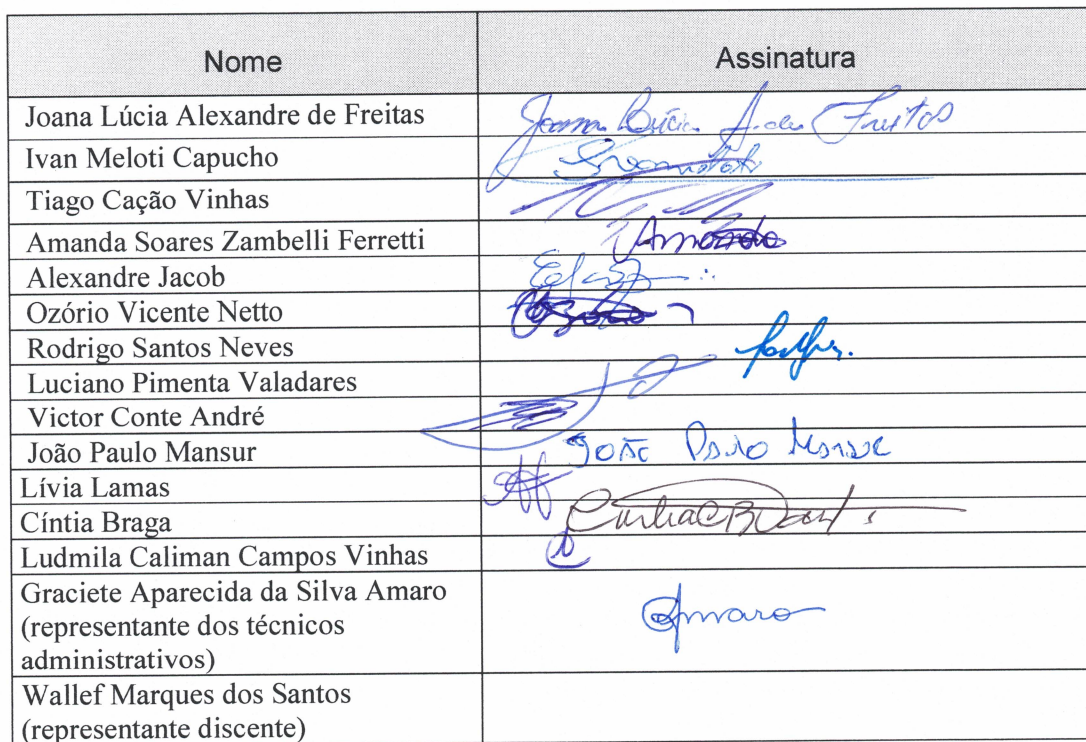 Nome Assinatura
Joana Lúcia Alexandre de Freitas Joana Lúcia A. de Freitas
Ivan Meloti Capucho
Tiago Cação Vinhas
Amanda Soares Zambelli Ferretti Amanda
Alexandre Jacob
Ozório Vicente Netto
Rodrigo Santos Neves
Luciano Pimenta Valadares
Victor Conte André
João Paulo Mansur João Paulo Mansur
Lívia Lamas
Cíntia Braga
Ludmila Caliman Campos Vinhas
Graciete Aparecida da Silva Amaro
(representante dos técnicos Amaro
administrativos)
Wallef Marques dos Santos
(representante discente)